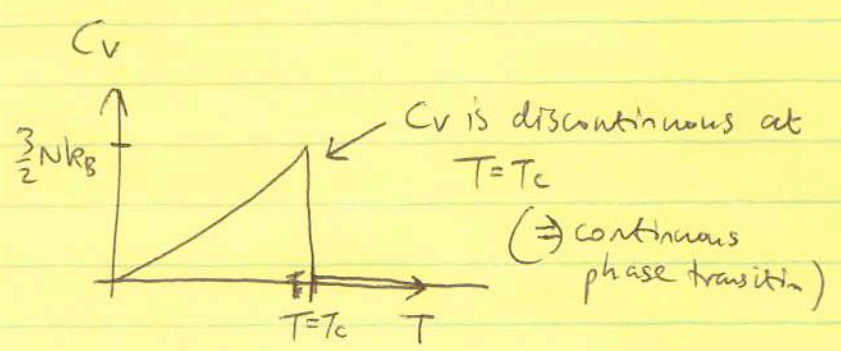 Cv
3/2 NkB
Cv is discontinuous at
T=Tc
(⇒ continuous
phase transition)
T=Tc T